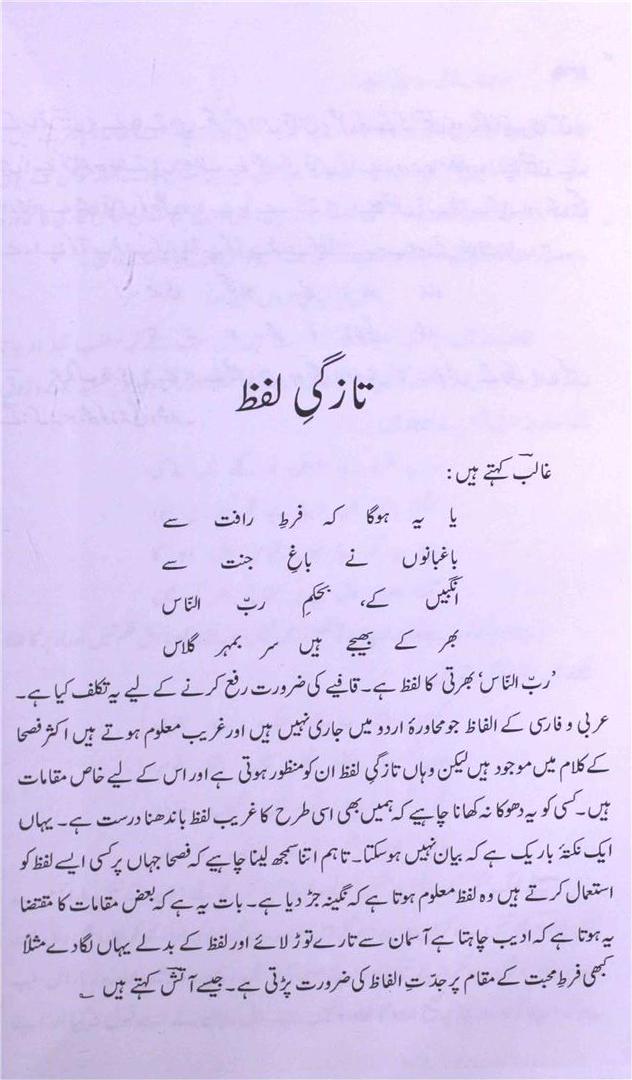 تازگیِ لفظ
غالبؔ کہتے ہیں:
یا یہ ہوگا کہ فرطِ رافت سے
باغبانوں نے باغِ جنت سے
انگبیں کے، بحکمِ ربّ النّاس
بھر کے بھیجے ہیں سر بمہر گلاس
’ربّ النّاس‘ بھرتی کا لفظ ہے۔ قافیے کی ضرورت رفع کرنے کے لیے یہ تکلف کیا ہے۔
عربی و فارسی کے الفاظ جو محاورۂ اردو میں جاری نہیں ہیں اور غریب معلوم ہوتے ہیں اکثر فصحا
کے کلام میں موجود ہیں لیکن وہاں تازگیِ لفظ ان کو منظور ہوتی ہے اور اس کے لیے خاص مقامات
ہیں۔ کسی کو یہ دھوکا نہ کھانا چاہیے کہ ہمیں بھی اسی طرح کا غریب لفظ باندھنا درست ہے۔ یہاں
ایک نکتۂ باریک ہے کہ بیان نہیں ہوسکتا۔ تاہم اتنا سمجھ لینا چاہیے کہ فصحا جہاں پر کسی ایسے لفظ کو
استعمال کرتے ہیں وہ لفظ معلوم ہوتا ہے کہ نگینہ جڑ دیا ہے۔ بات یہ ہے کہ بعض مقامات کا مقتضا
یہ ہوتا ہے کہ ادیب چاہتا ہے آسمان سے تارے توڑ لائے اور لفظ کے بدلے یہاں لگا دے مثلاً
کبھی فرطِ محبت کے مقام پر جدّتِ الفاظ کی ضرورت پڑتی ہے۔ جیسے آتشؔ کہتے ہیں ؎